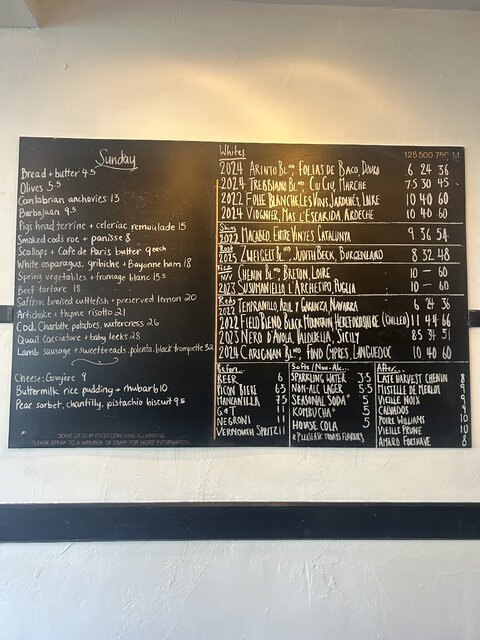 Sunday
Bread + butter 4.5
Olives 5.5
Cantabrian anchovies 13
Barbajuan 9.5
Pigs head terrine + celeriac remoulade 15
Smoked cods roe + panisse 8
Scallops + Cafe de Paris butter 9 each
White asparagus, gribiche + Bayonne ham 18
Spring vegetables + fromage blanc 15.5
Beef tartare 18
Saffron braised cuttlefish + preserved lemon 20
Artichoke + thyme risotto 21
Cod, Charlotte potatoes, watercress 26
Quail cacciatore + baby leeks 28
Lamb sausage + sweetbreads, polenta, black trompette 32
Cheese: Gruyère 9
Buttermilk rice pudding + rhubarb 10
Pear sorbet, chantilly, pistachio biscuit 9.5
SOME OF OUR FOOD CONTAINS ALLERGENS
PLEASE SPEAK TO A MEMBER OF STAFF FOR MORE INFORMATION
Whites 125 500 750 M
2024 Arinto Blend Folias de Baco, Douro 6 24 36
2024 Trebbiano Blend Ciu Ciu, Marche 7.5 30 45
2022 Folle Blanche, Les Vins Jardinés, Loire 10 40 60
2024 Viognier, Mas L'Escarida Ardeche 10 40 60
Skins
2022 Macabeo, Entre Vinyes, Catalunya 9 36 54
Rosé
2025 Zweigelt Blend Judith Beck, Burgenland 8 32 48
Fizz
N/V Chenin Blend Breton, Loire 10 – 60
2023 Susumaniello L'Archetipo, Puglia 10 – 60
Reds
2022 Tempranillo, Azul y Garanza, Navarra 6 24 36
2022 Field Blend Black Mountain, Herefordshire (Chilled) 11 44 66
2023 Nero d'Avola, Valdibella, Sicily 8.5 34 51
2024 Carignan Blend Hind Cypres, Languedoc 10 40 60
Before...
Beer 6
Picon Biere 6.5
Manzanilla 7.5
G+T 11
Negroni 11
Vermouth Spritz 11
Softs/Non-Alc...
Sparkling Water 3.5
Non-Alc Lager 5.5
Seasonal Soda* 5
Kombucha* 5
House Cola 5
*Please ask to nights flavours
After...
Late Harvest Chenin 8
Mistelle de Merlot 8
Vieille Noix 9
Calvados 9
Poire Williams 10
Vieille Prune 10
Amaro Formave 8